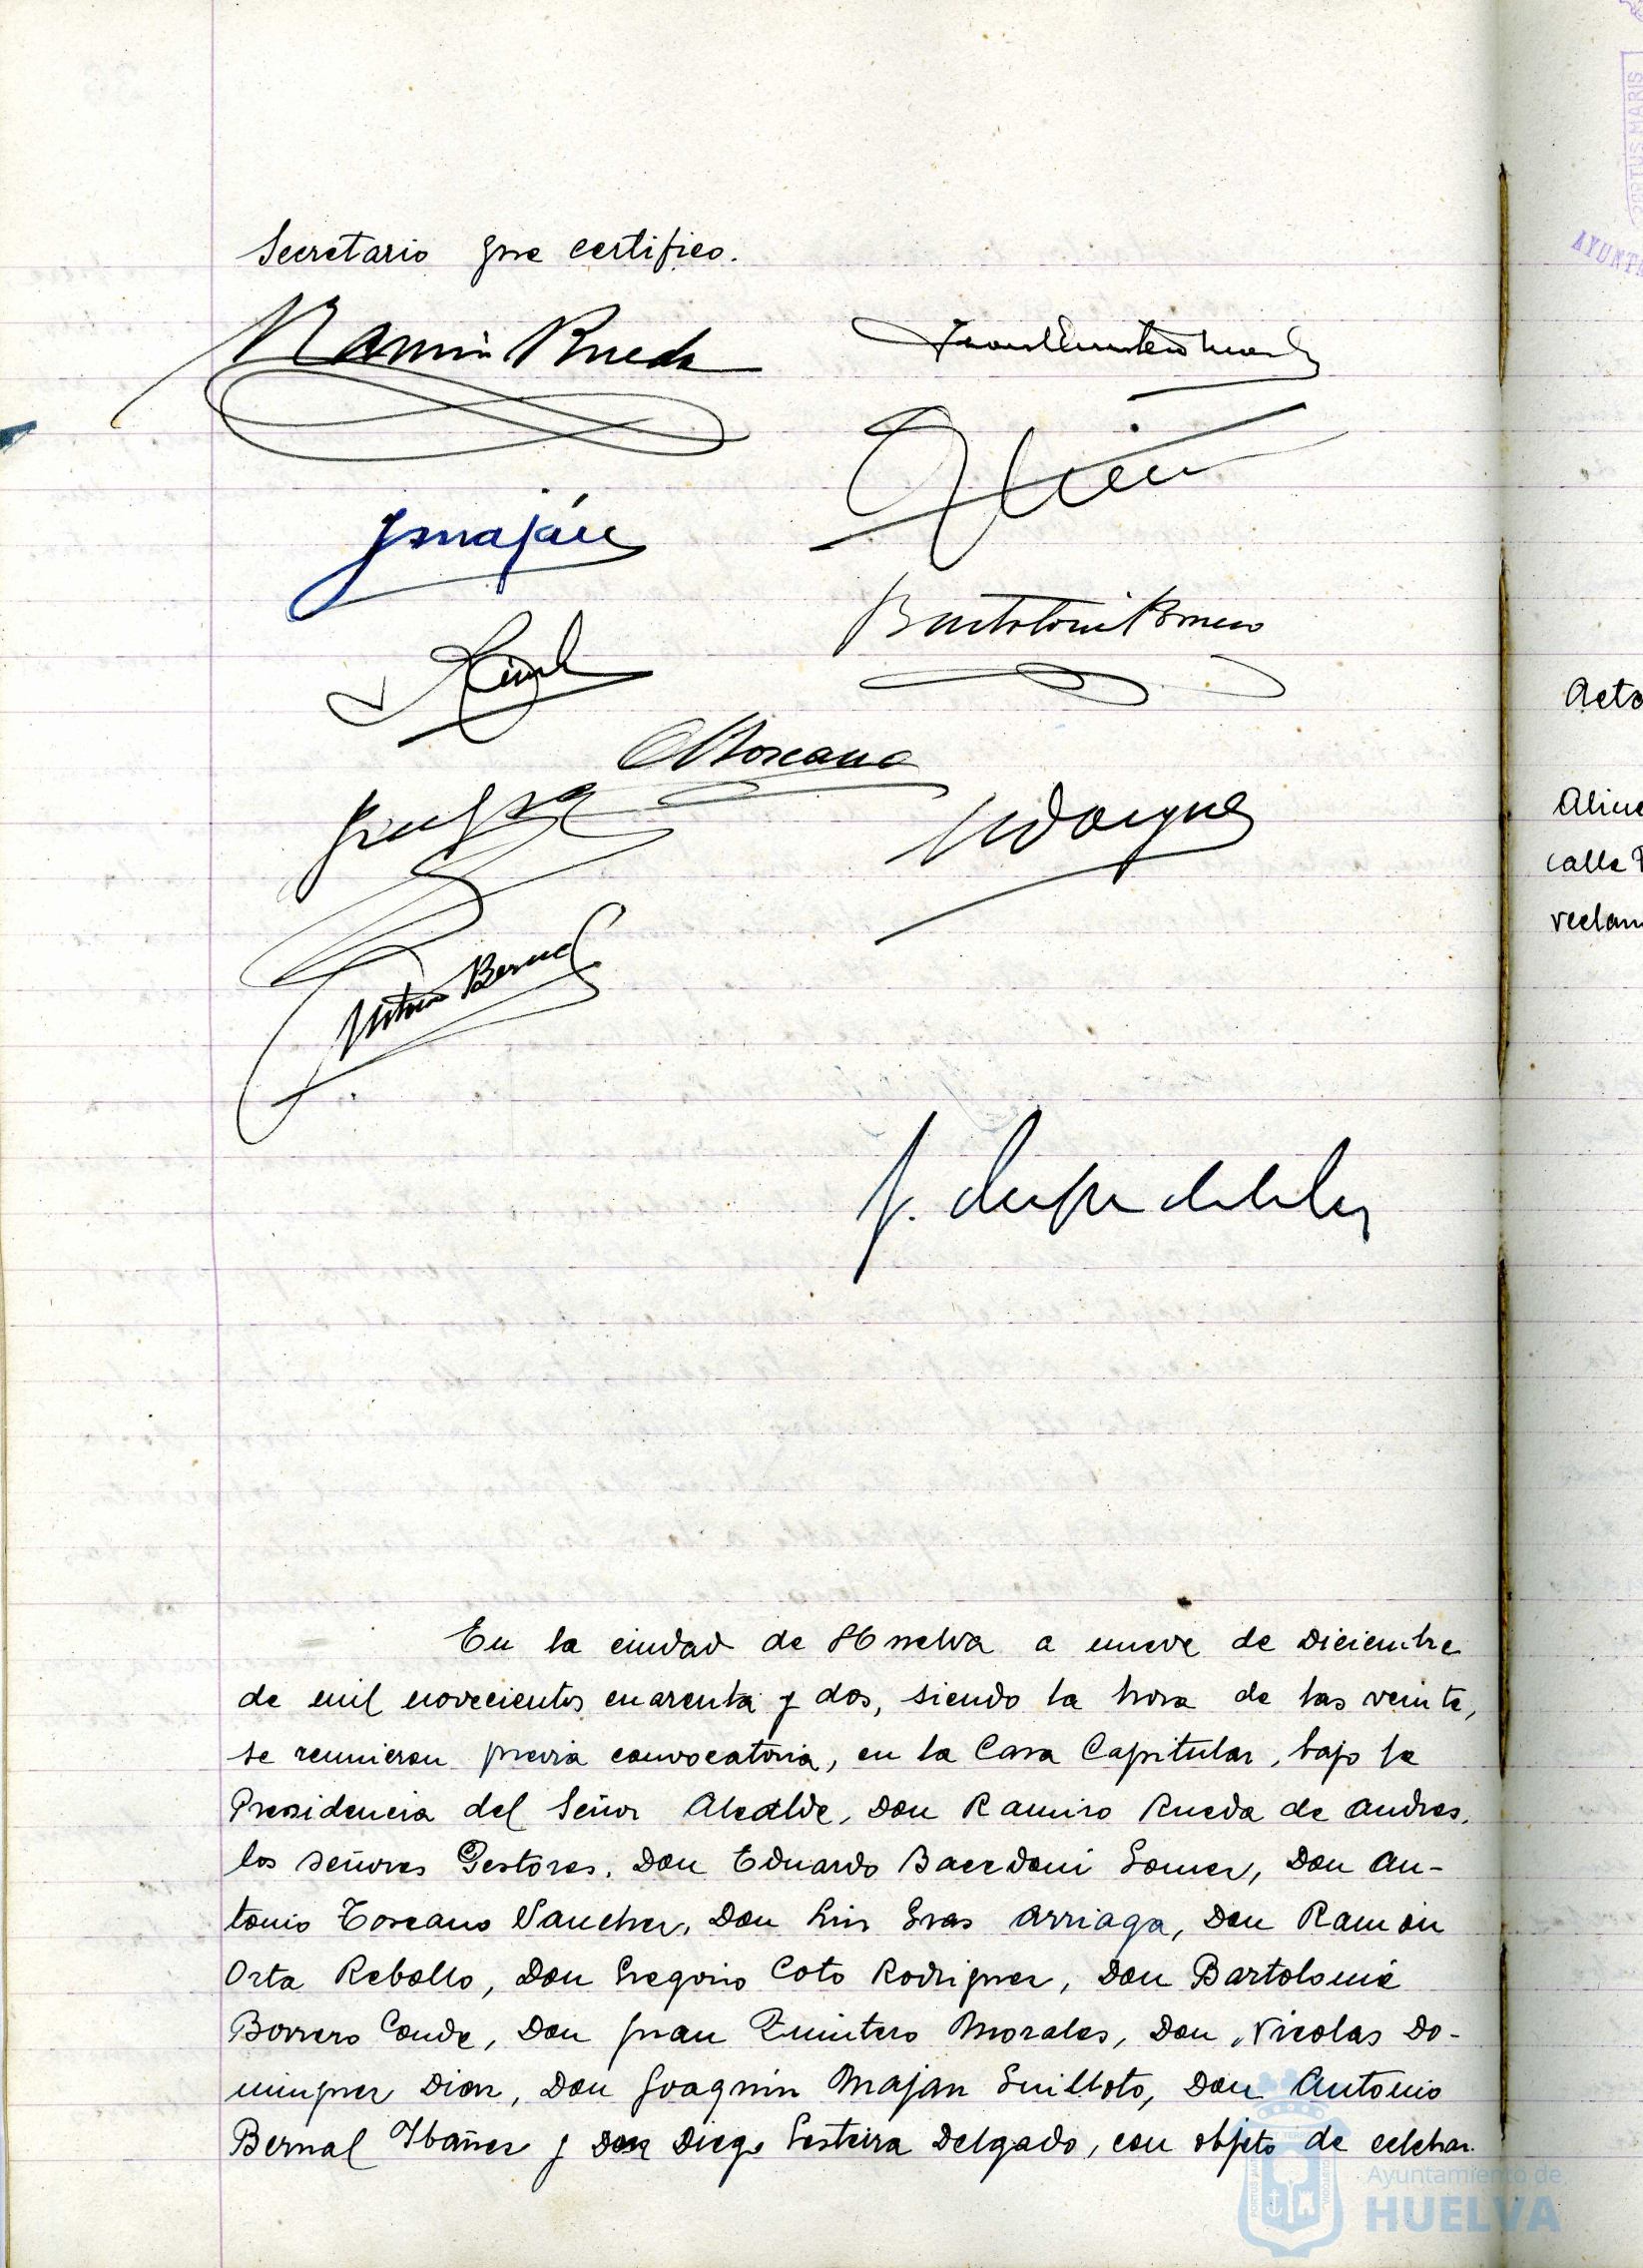 Secretario que certifico.
Ramiro Rueda
JMaján
Bartolomé Borrero
AToscano
NDomgues
Antonio Bernal
En la ciudad de Huelva a nueve de Diciembre
de mil novecientos cuarenta y dos, siendo la hora de las veinte,
se reunieron previa convocatoria, en la Casa Capitular, bajo la
Presidencia del Señor Alcalde, Don Ramiro Rueda de Andres,
los señores Gestores, Don Eduardo Bacedoni Gomez, Don An-
tonio Toscano Sanchez, Don Luis Gras Arriaga, Don Ramón
Orta Rebollo, Don Gregorio Coto Rodriguez, Don Bartolomé
Borrero Conde, Don Juan Quintero Morales, Don Nicolas Do-
minguez Diaz, Don Joaquin Majan Guilloto, Don Antonio
Bernal Ibañez y Don Diego Gesteira Delgado, con objeto de celebrar
Ayuntamiento de
HUELVA
PORTUS MARIS
AYUNT
Acto
Aline
calle
reclam